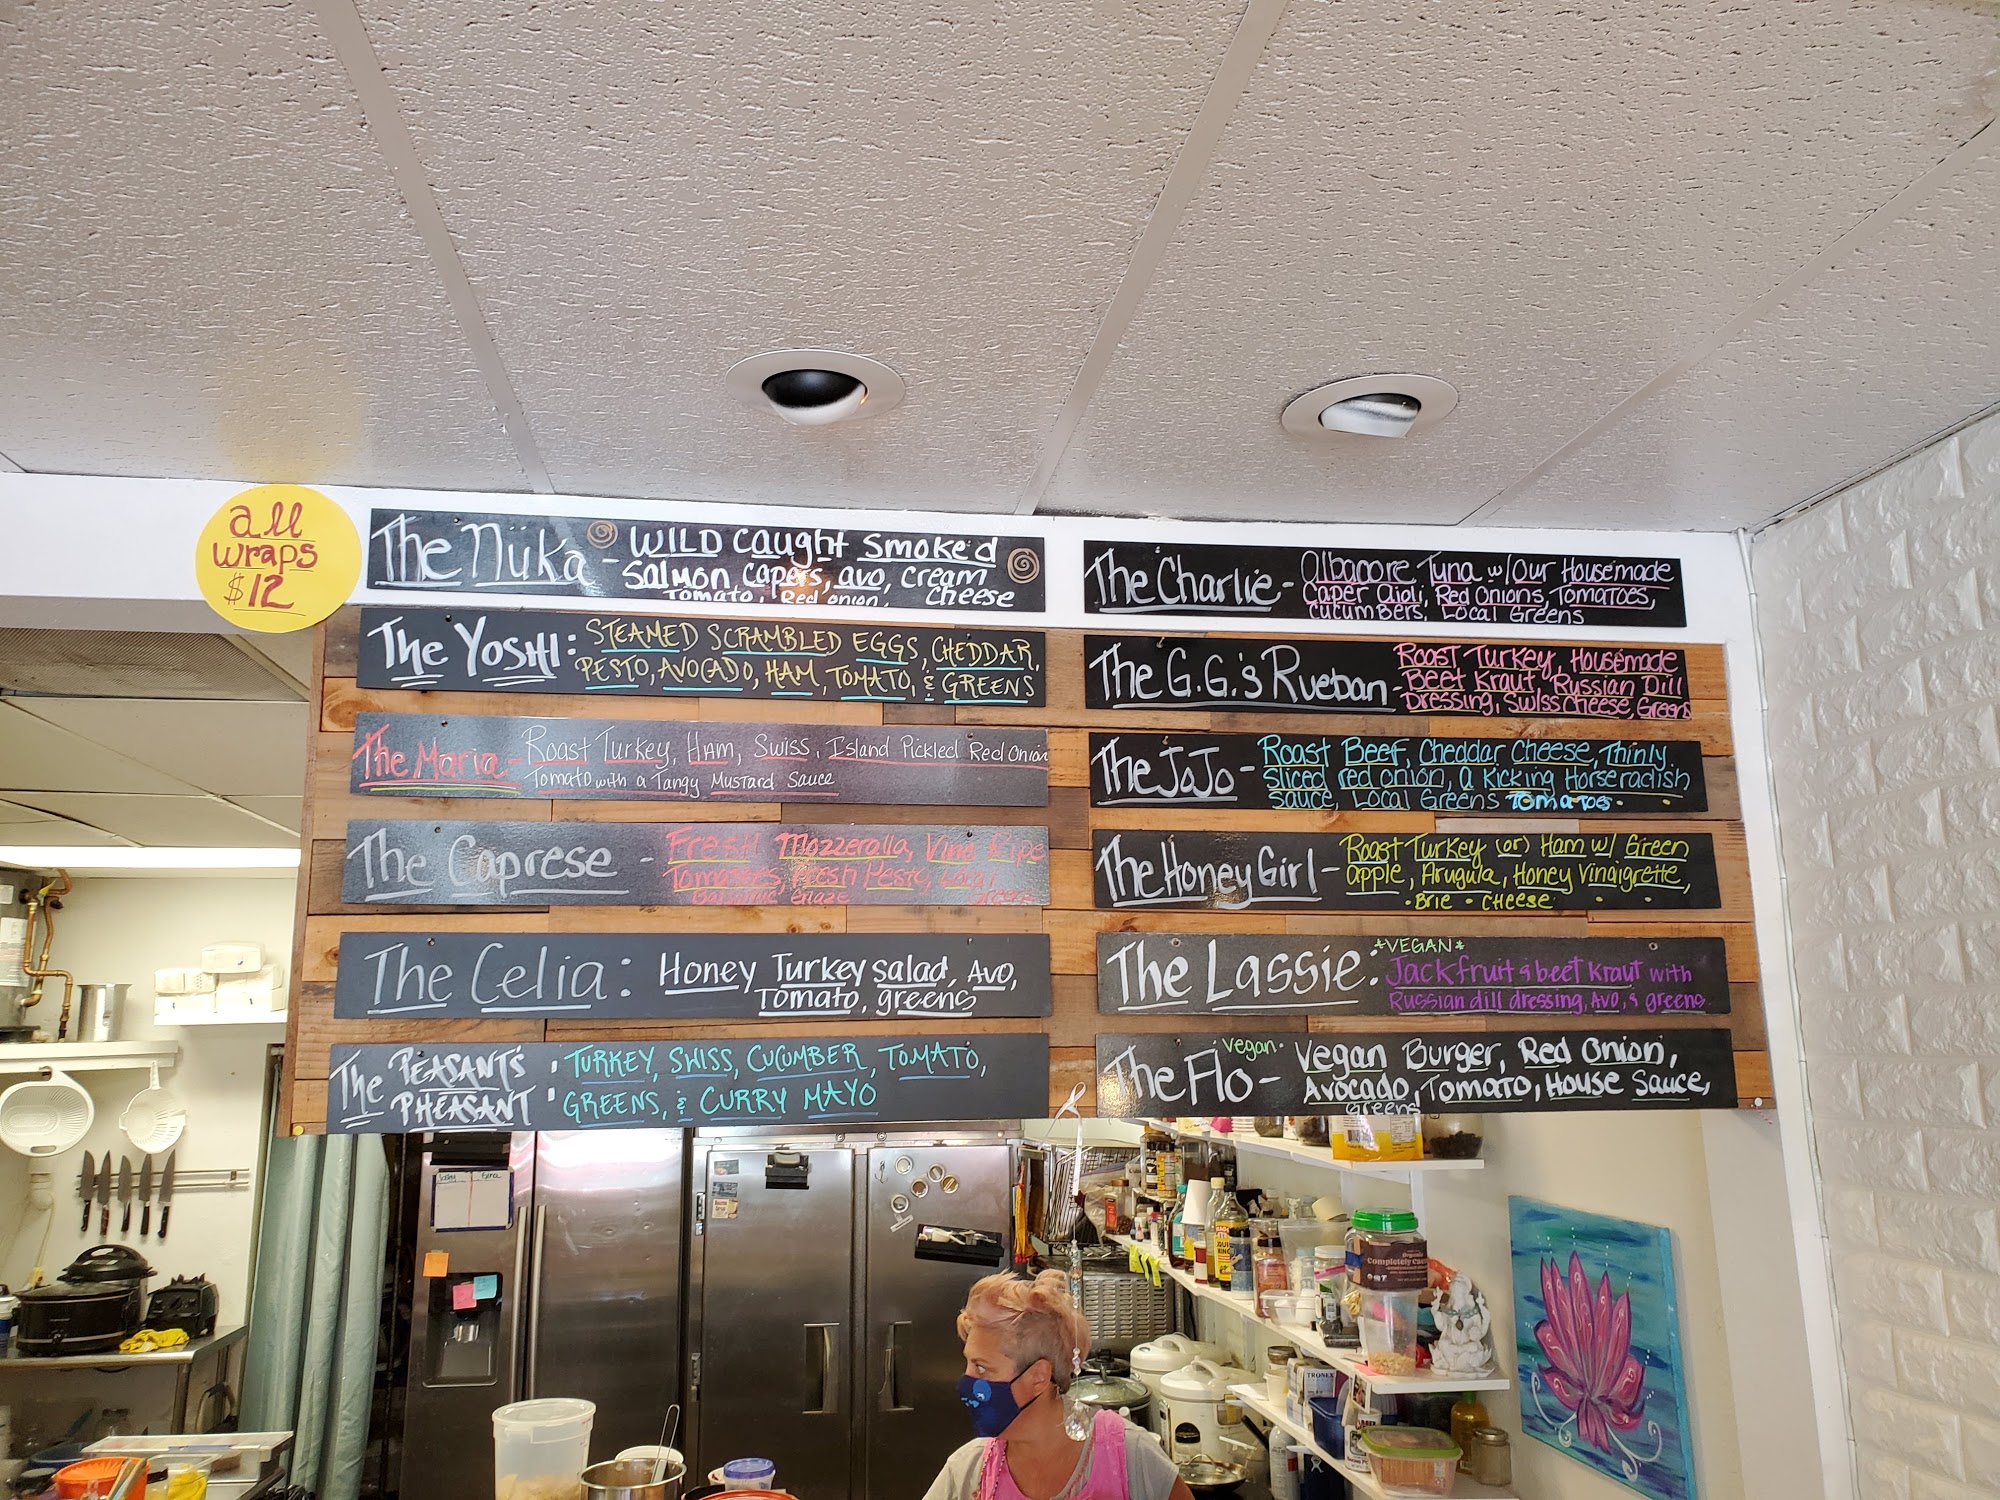 all
wraps
$12
The Nüka - WILD caught smoked
salmon capers, avo, cream
Tomato, Red onion, cheese
The YOSHI: STEAMED SCRAMBLED EGGS, CHEDDAR,
PESTO, AVOCADO, HAM, TOMATO, & GREENS
The Maria - Roast Turkey, Ham, Swiss, Island Pickled Red Onion
Tomato with a Tangy Mustard Sauce
The Caprese - Fresh Mozzeralla, Vine Ripe
Tomatoes, Fresh Pesto, Local
Balsamic glaze Greens
The Celia: Honey Turkey salad, Avo,
Tomato, greens
The PEASANT'S PHEASANT: TURKEY, SWISS, CUCUMBER, TOMATO,
GREENS, & CURRY MAYO
The Charlie - Albacore Tuna w/ Our Housemade
Caper Aioli, Red Onions, Tomatoes,
cucumbers, Local Greens
The G.G.'s Rueban - Roast Turkey, Housemade
Beet Kraut, Russian Dill
Dressing, Swiss Cheese, Greens
The JoJo - Roast Beef, Cheddar Cheese, Thinly
Sliced red onion, a Kicking Horseradish
Sauce, Local Greens Tomatoes
The Honey Girl - Roast Turkey (or) Ham w/ Green
apple, Arugula, Honey Vinaigrette,
• Brie • Cheese
The Lassie: *VEGAN*
Jackfruit & beet kraut with
Russian dill dressing, avo, & greens
The Flo - Vegan. Vegan Burger, Red Onion,
Avocado, Tomato, House Sauce,
Greens
Completely
TRONEX